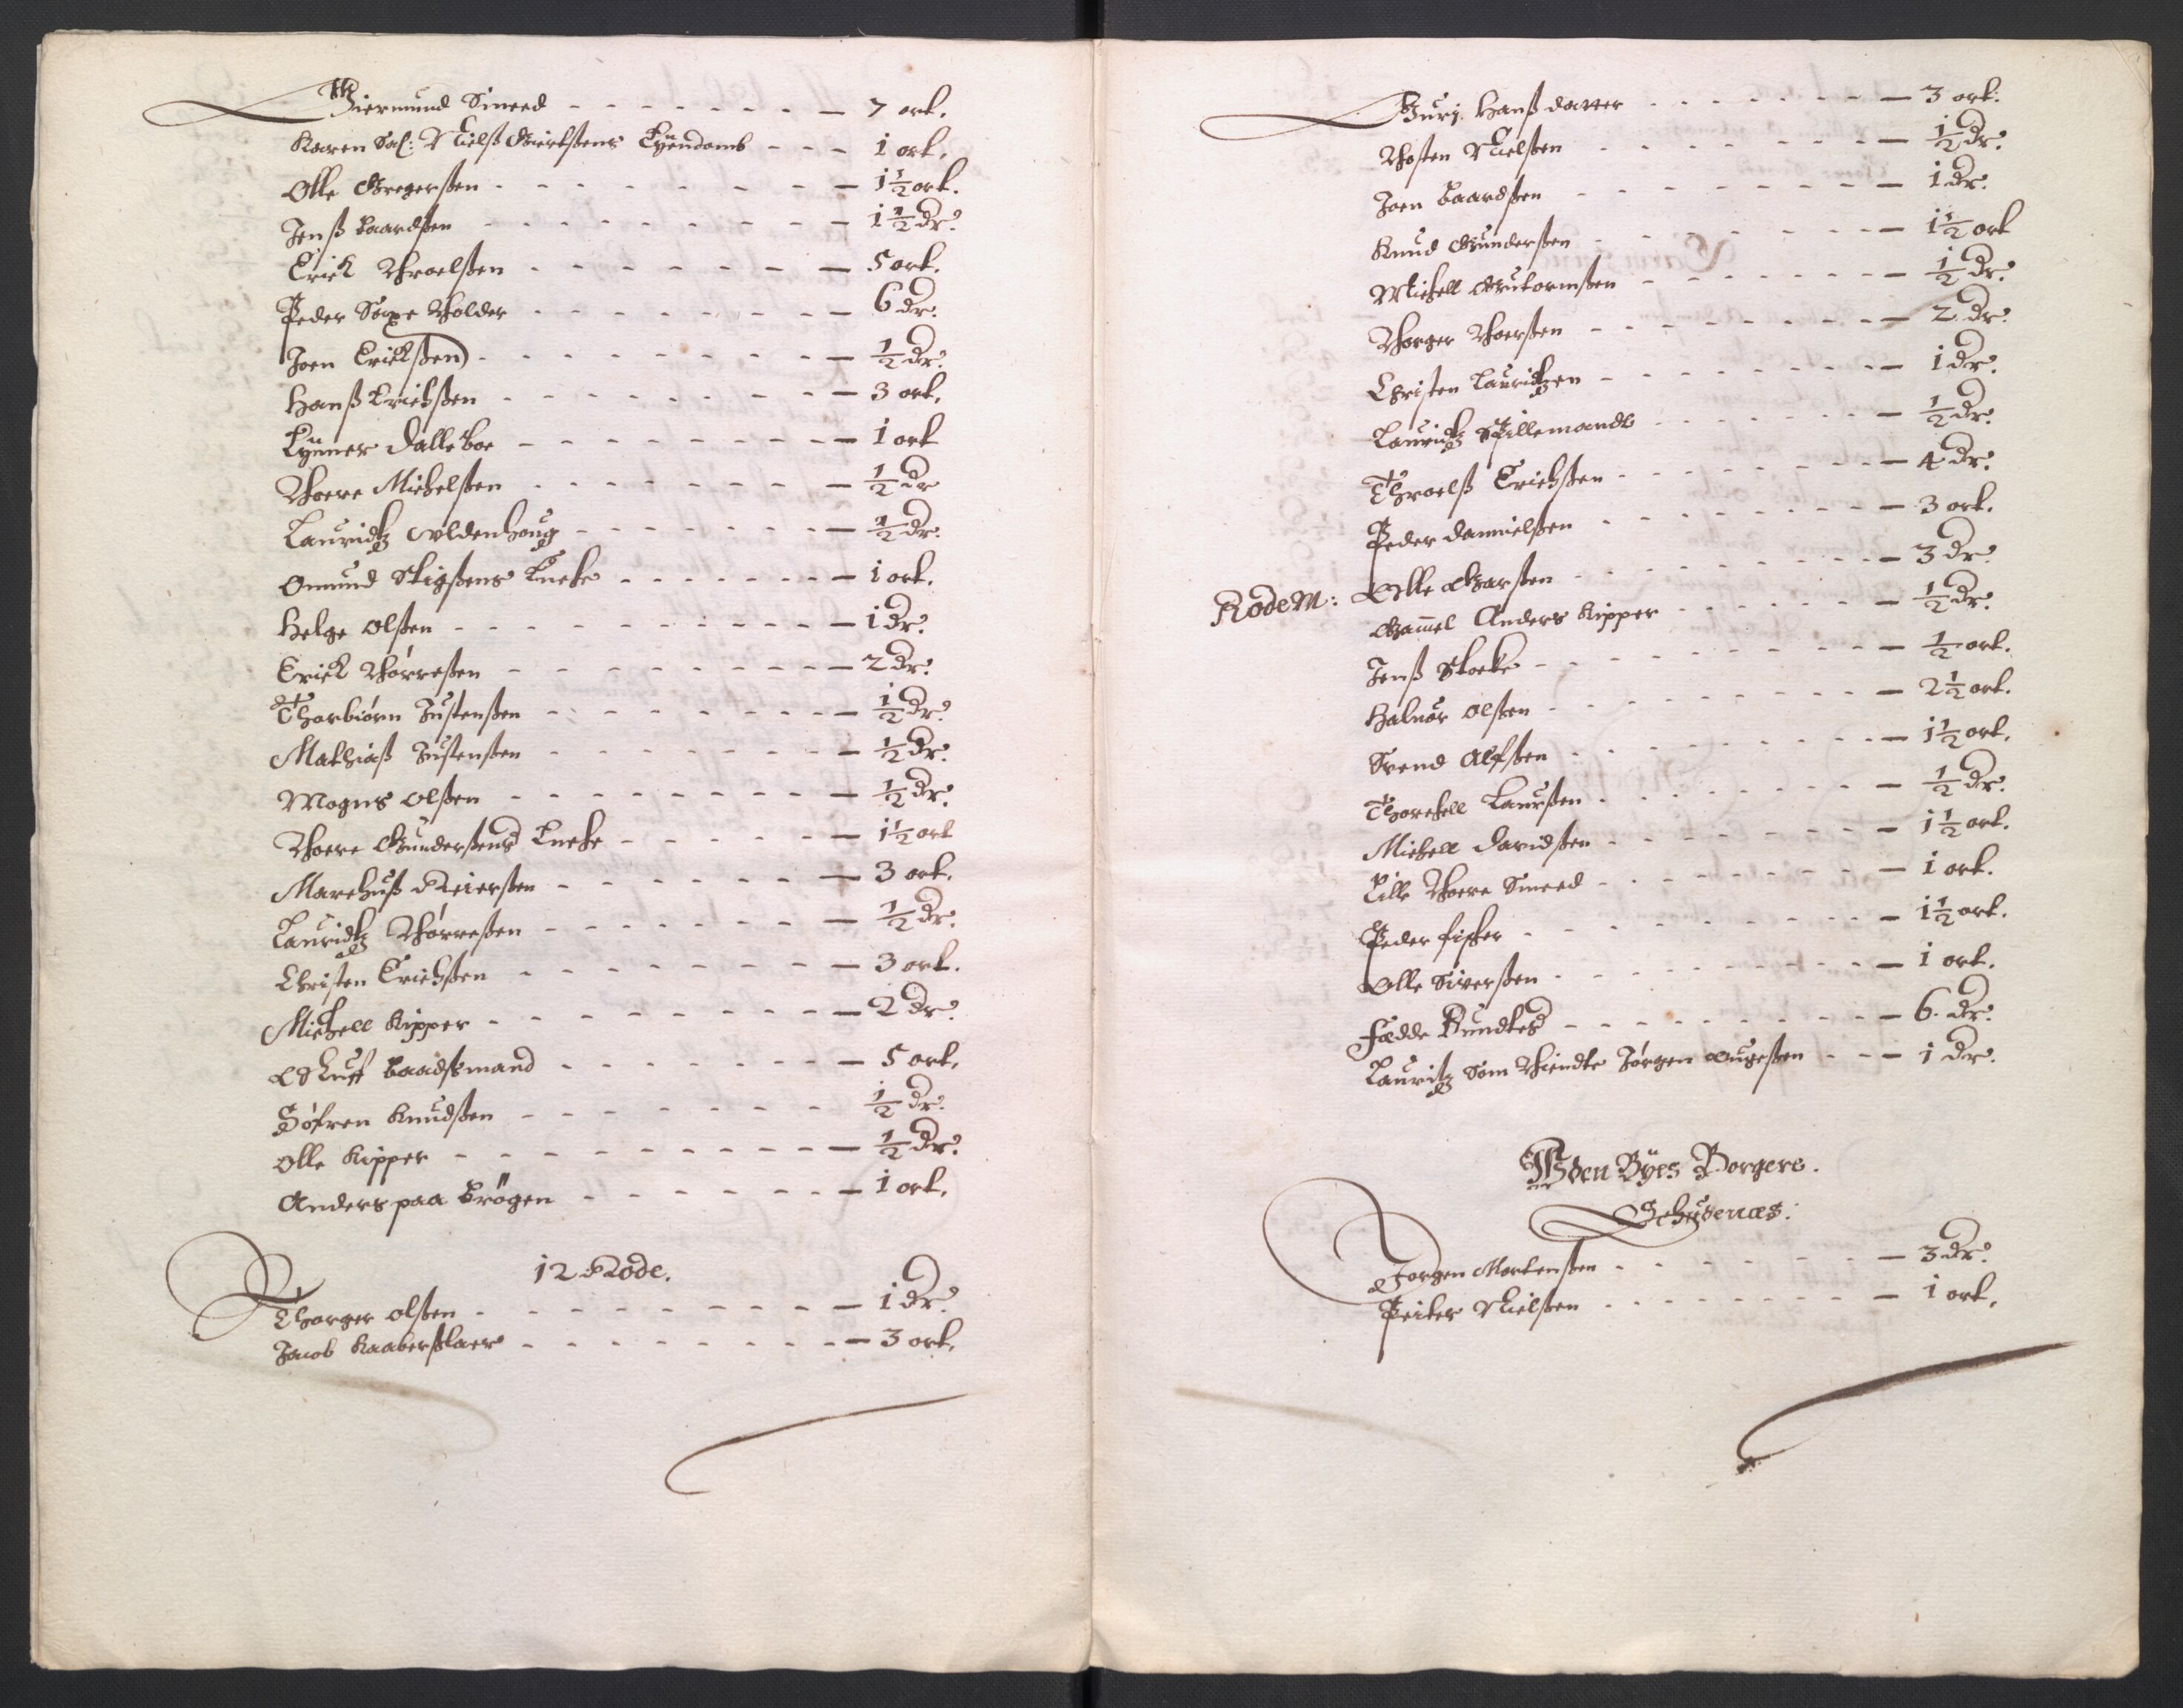 Giermund Smeed - - - - - - - - 7 ort.
Karen Sal: Nielß Giertßens Eÿendomb - - - 1 ort.
Olle Gregerßen - - - - - - - - 1½ ort.
Jenß Baardßen - - - - - - - - 1½ dr.
Erick Throelßen - - - - - - - 5 ort.
Peder Saxe Holder - - - - - - - 6 dr.
Joen Erickßen - - - - - - - - ½ dr.
Hanß Erichßen - - - - - - - - 3 ort.
Eÿnner Dalleboe - - - - - - - - 1 ort
Thore Michelßen - - - - - - - ½ dr
Lauridtz Uldenhoug - - - - - - - ½ dr.
Omund Stigßens Encke - - - - - - - 1 ort.
Helge Olßen - - - - - - - - - 1 dr.
Erick Thørreßen - - - - - - - - 2 dr.
Thorbiørn Justenßen - - - - - - - ½ dr.
Mathiaß Justenßen - - - - - - - ½ dr.
Mogns Olßen - - - - - - - - ½ dr.
Thore Gunderßens Encke - - - - - - 1½ ort
Marchuß Reierßen - - - - - - - 3 ort.
Lauridtz Thørreßen - - - - - - - ½ dr.
Christen Erichßen - - - - - - - - 3 ort.
Michell Kipper - - - - - - - - 2 dr.
Oluff Baadßmand - - - - - - - 5 ort.
Søfren Knudßen - - - - - - - - ½ dr.
Olle Kipper - - - - - - - - - ½ dr.
Anders paa Brøgen - - - - - - - 1 ort.
12 Rode.
Thorger Olßen - - - - - - - - 1 dr.
Jacob Kaaberßlaer - - - - - - - - 3 ort.
Guri Hanß Datter - - - - - - - 3 ort.
Thosten Nielßen - - - - - - - ½ dr.
Joen Baardßen - - - - - - - - 1 dr.
Knud Gunderßen - - - - - - - 1½ ort
Michell Gutormßen - - - - - - ½ dr.
Thorger Thorßen - - - - - - - - 2 dr.
Christen Lauridtzen - - - - - - - 1 dr.
Lauridtz Spillemandt - - - - - - ½ dr.
Throelß Erichßen - - - - - - - - 4 dr.
Peder Dannielßen - - - - - - - - 3 ort.
RodeM: Olle Iffuarßen - - - - - - - 3 dr.
Gam̄el Anders Kipper - - - - - - ½ dr.
Jenß Stocke - - - - - - - - ½ ort.
Halnør Olßen - - - - - - - - 2½ ort.
Svend Alfßen - - - - - - - - 1½ ort.
Thorchell Laurßen - - - - - - - ½ dr.
Michell Davidßen - - - - - - - 1½ ort.
Lille Thore Smeed - - - - - - - 1 ort.
Peder Fischer - - - - - - - - 1½ ort.
Olle Siverßen - - - - - - - - 1 ort.
Fædde Bundtes - - - - - - - - 6 dr.
Lauritz som thiendte Jørgen Augeßen - - - 1 dr.
Uden Bÿes Borgere.
Schudenæs:
Jørgen Mortenßen - - - - - - - 3 dr.
Peiter Nielßen - - - - - - - - 1 ort.